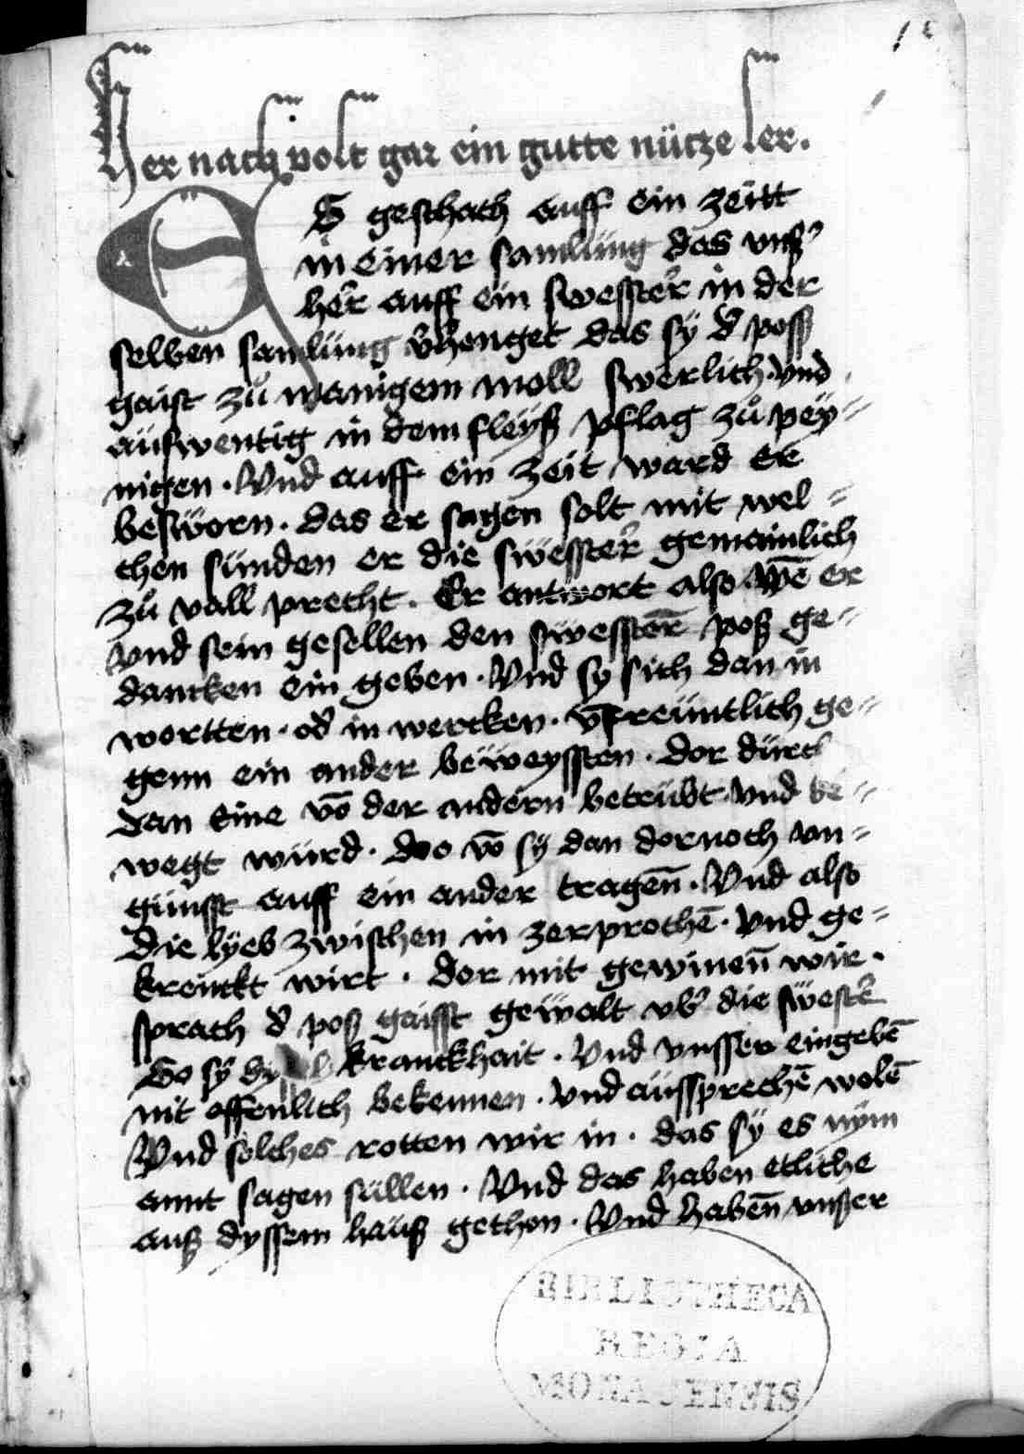 Her nach volt gar ein gutte nütze ler.
ES geschach auff ein zeitt
in einer samlüng das vnß'
her auff ein swesster in der
selben samlüng v̄henget das sÿ d' poß
gaist zů manigem moll swerlich. vnd
außwentig in dem fleÿß pflag zů peÿ=
nigen. Vnd auff ein zeit ward er
besworn. das er sagen solt mit wel=
chen sünden er die swesster gemainlich
zů vall precht. Er antwort also Wē er
vnd sein gesellen den swesstern̄ poß ge=
dancken ein geben. Vnd sy sich dan in
wortten. od' in wercken. vn̄freuntlich ge=
genn ein ander beweyssten. dor dürch
dan eine vō der andern betrübt vnd be=
wegt würd. doo vō sÿ dan dornoch vn=
günsst auff ein ander tragen̄. Vnd also
die lÿeb zwischen in zerprochē. vnd ge=
krenckt wirt. dor mit gewinen̄ wir.
sprach d' poß gaisst gewalt vb' die swester
So sÿ kranckhait. Vnd vnsser eingebē
nit offenlich bekennen. vnd aussprechē wolē
Vnd solches rotten wir in. das sÿ es nÿm
annt sagen süllen. Vnd das haben etliche
auß dyssem hauß gethon. Vnd haben̄ vnßer
BIBLIOTHECA
REGIA
MONACENSIS